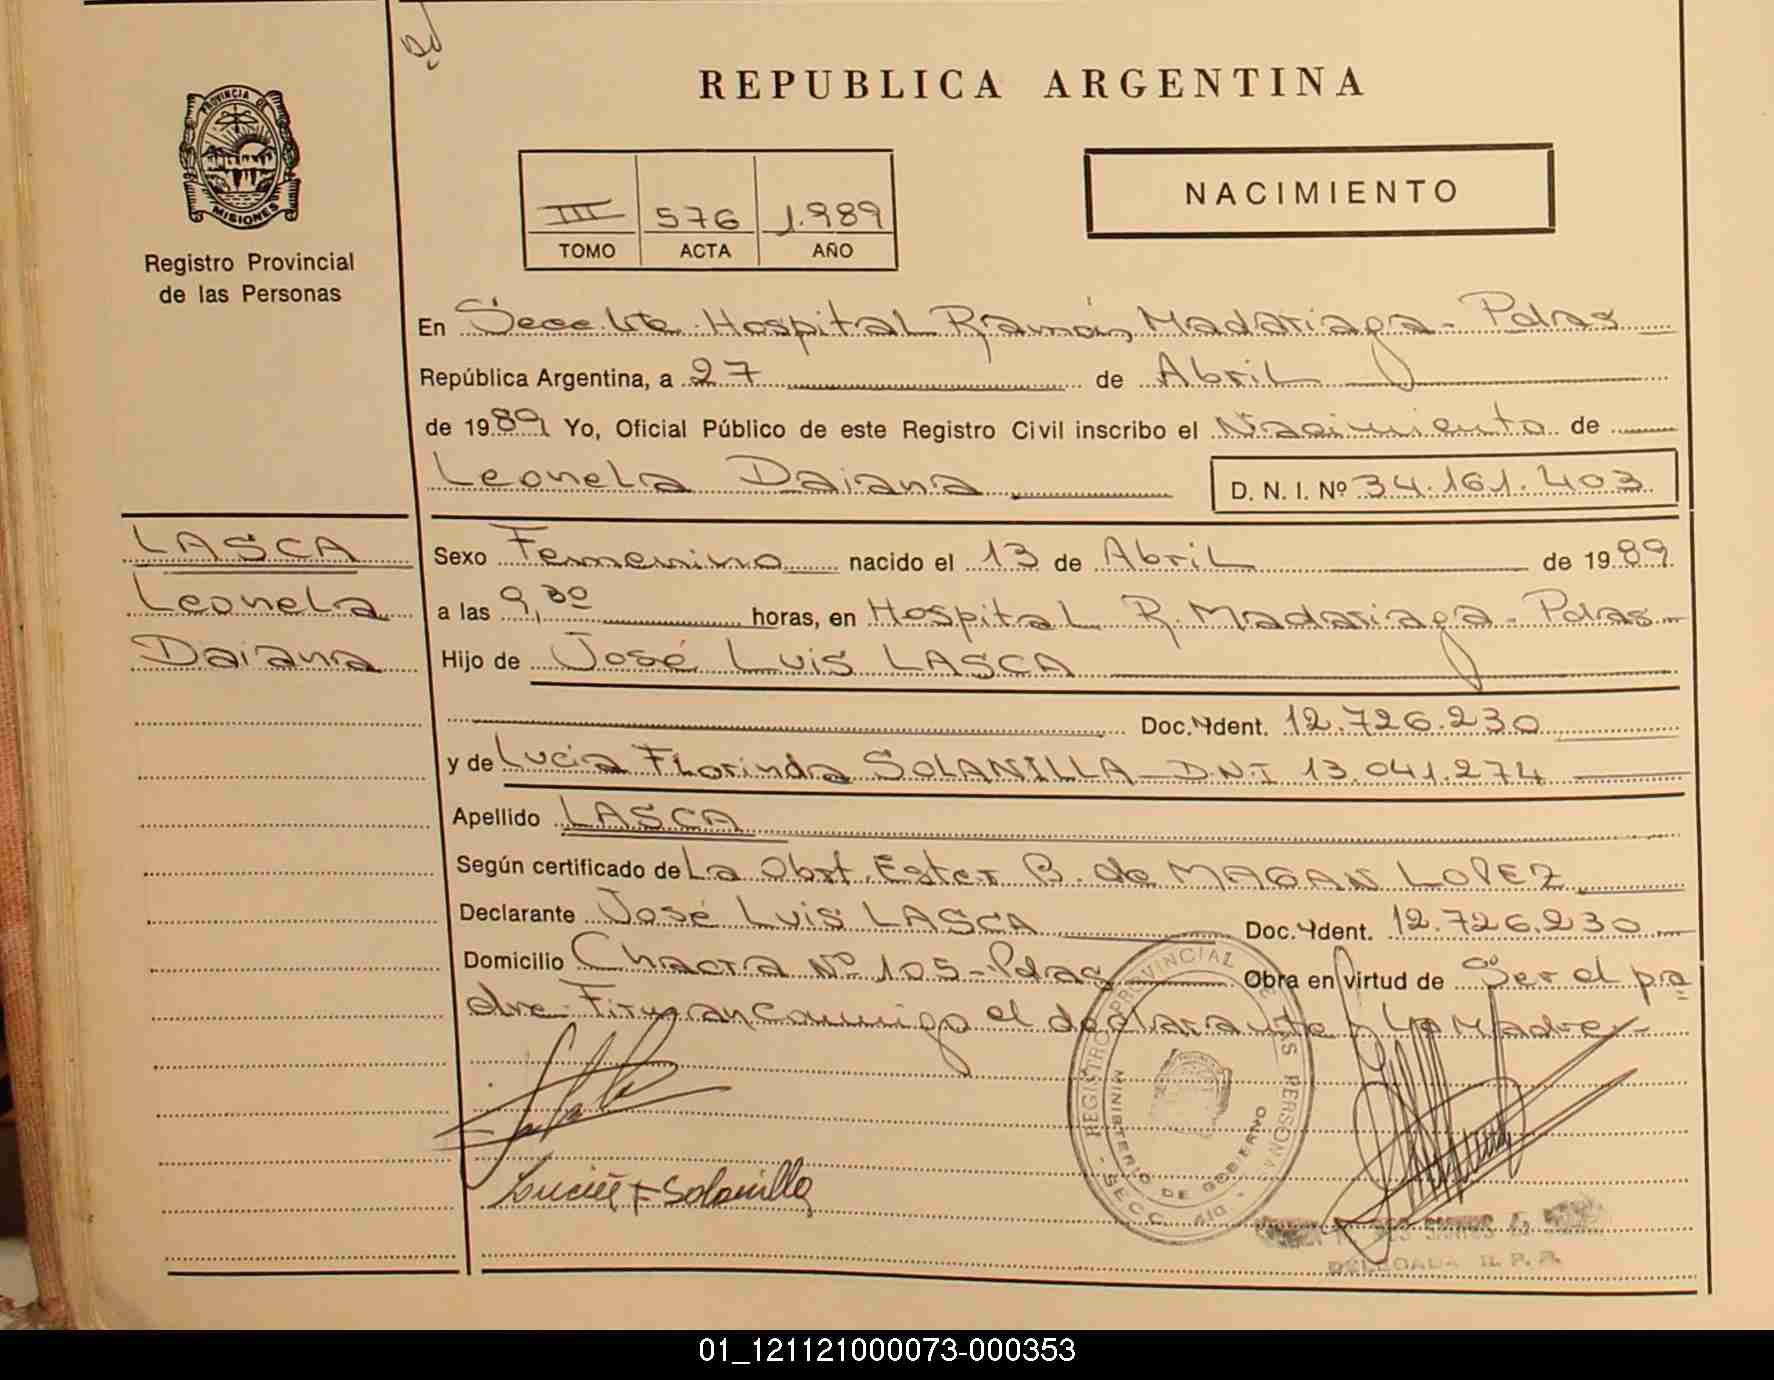 REPUBLICA ARGENTINA
PROVINCIA DE
MISIONES
Registro Provincial
de las Personas
III 576 1.989
TOMO ACTA AÑO
NACIMIENTO
En Secc Hospital Ramón Madariaga - Pdas
República Argentina, a 27 de Abril
de 1989 Yo, Oficial Público de este Registro Civil inscribo el Nacimiento de
Leonela Daiana D. N. I. Nº 34.161.403
LASCA
Leonela
Daiana
Sexo Femenino nacido el 13 de Abril de 1989
a las 9,30 horas, en Hospital R. Madariaga - Pdas
Hijo de José Luis LASCA
Doc. Ident. 12.726.230
y de Lucia Florinda SOLANILLA - D.N.I 13.041.274
Apellido LASCA
Según certificado de La Obst. Ester B. de MAGAN LOPEZ
Declarante José Luis LASCA Doc. Ident. 12.726.230
Domicilio Chacra Nº 105 - Pdas Obra en virtud de Ser el pa
dre - Firman conmigo el declarante y La Madre -
REGISTRO PROVINCIAL DE LAS PERSONAS
MINISTERIO DE GOBIERNO
SECC.
Lucia F Solanilla
DELEGADA R. P. P.
01_121121000073-000353